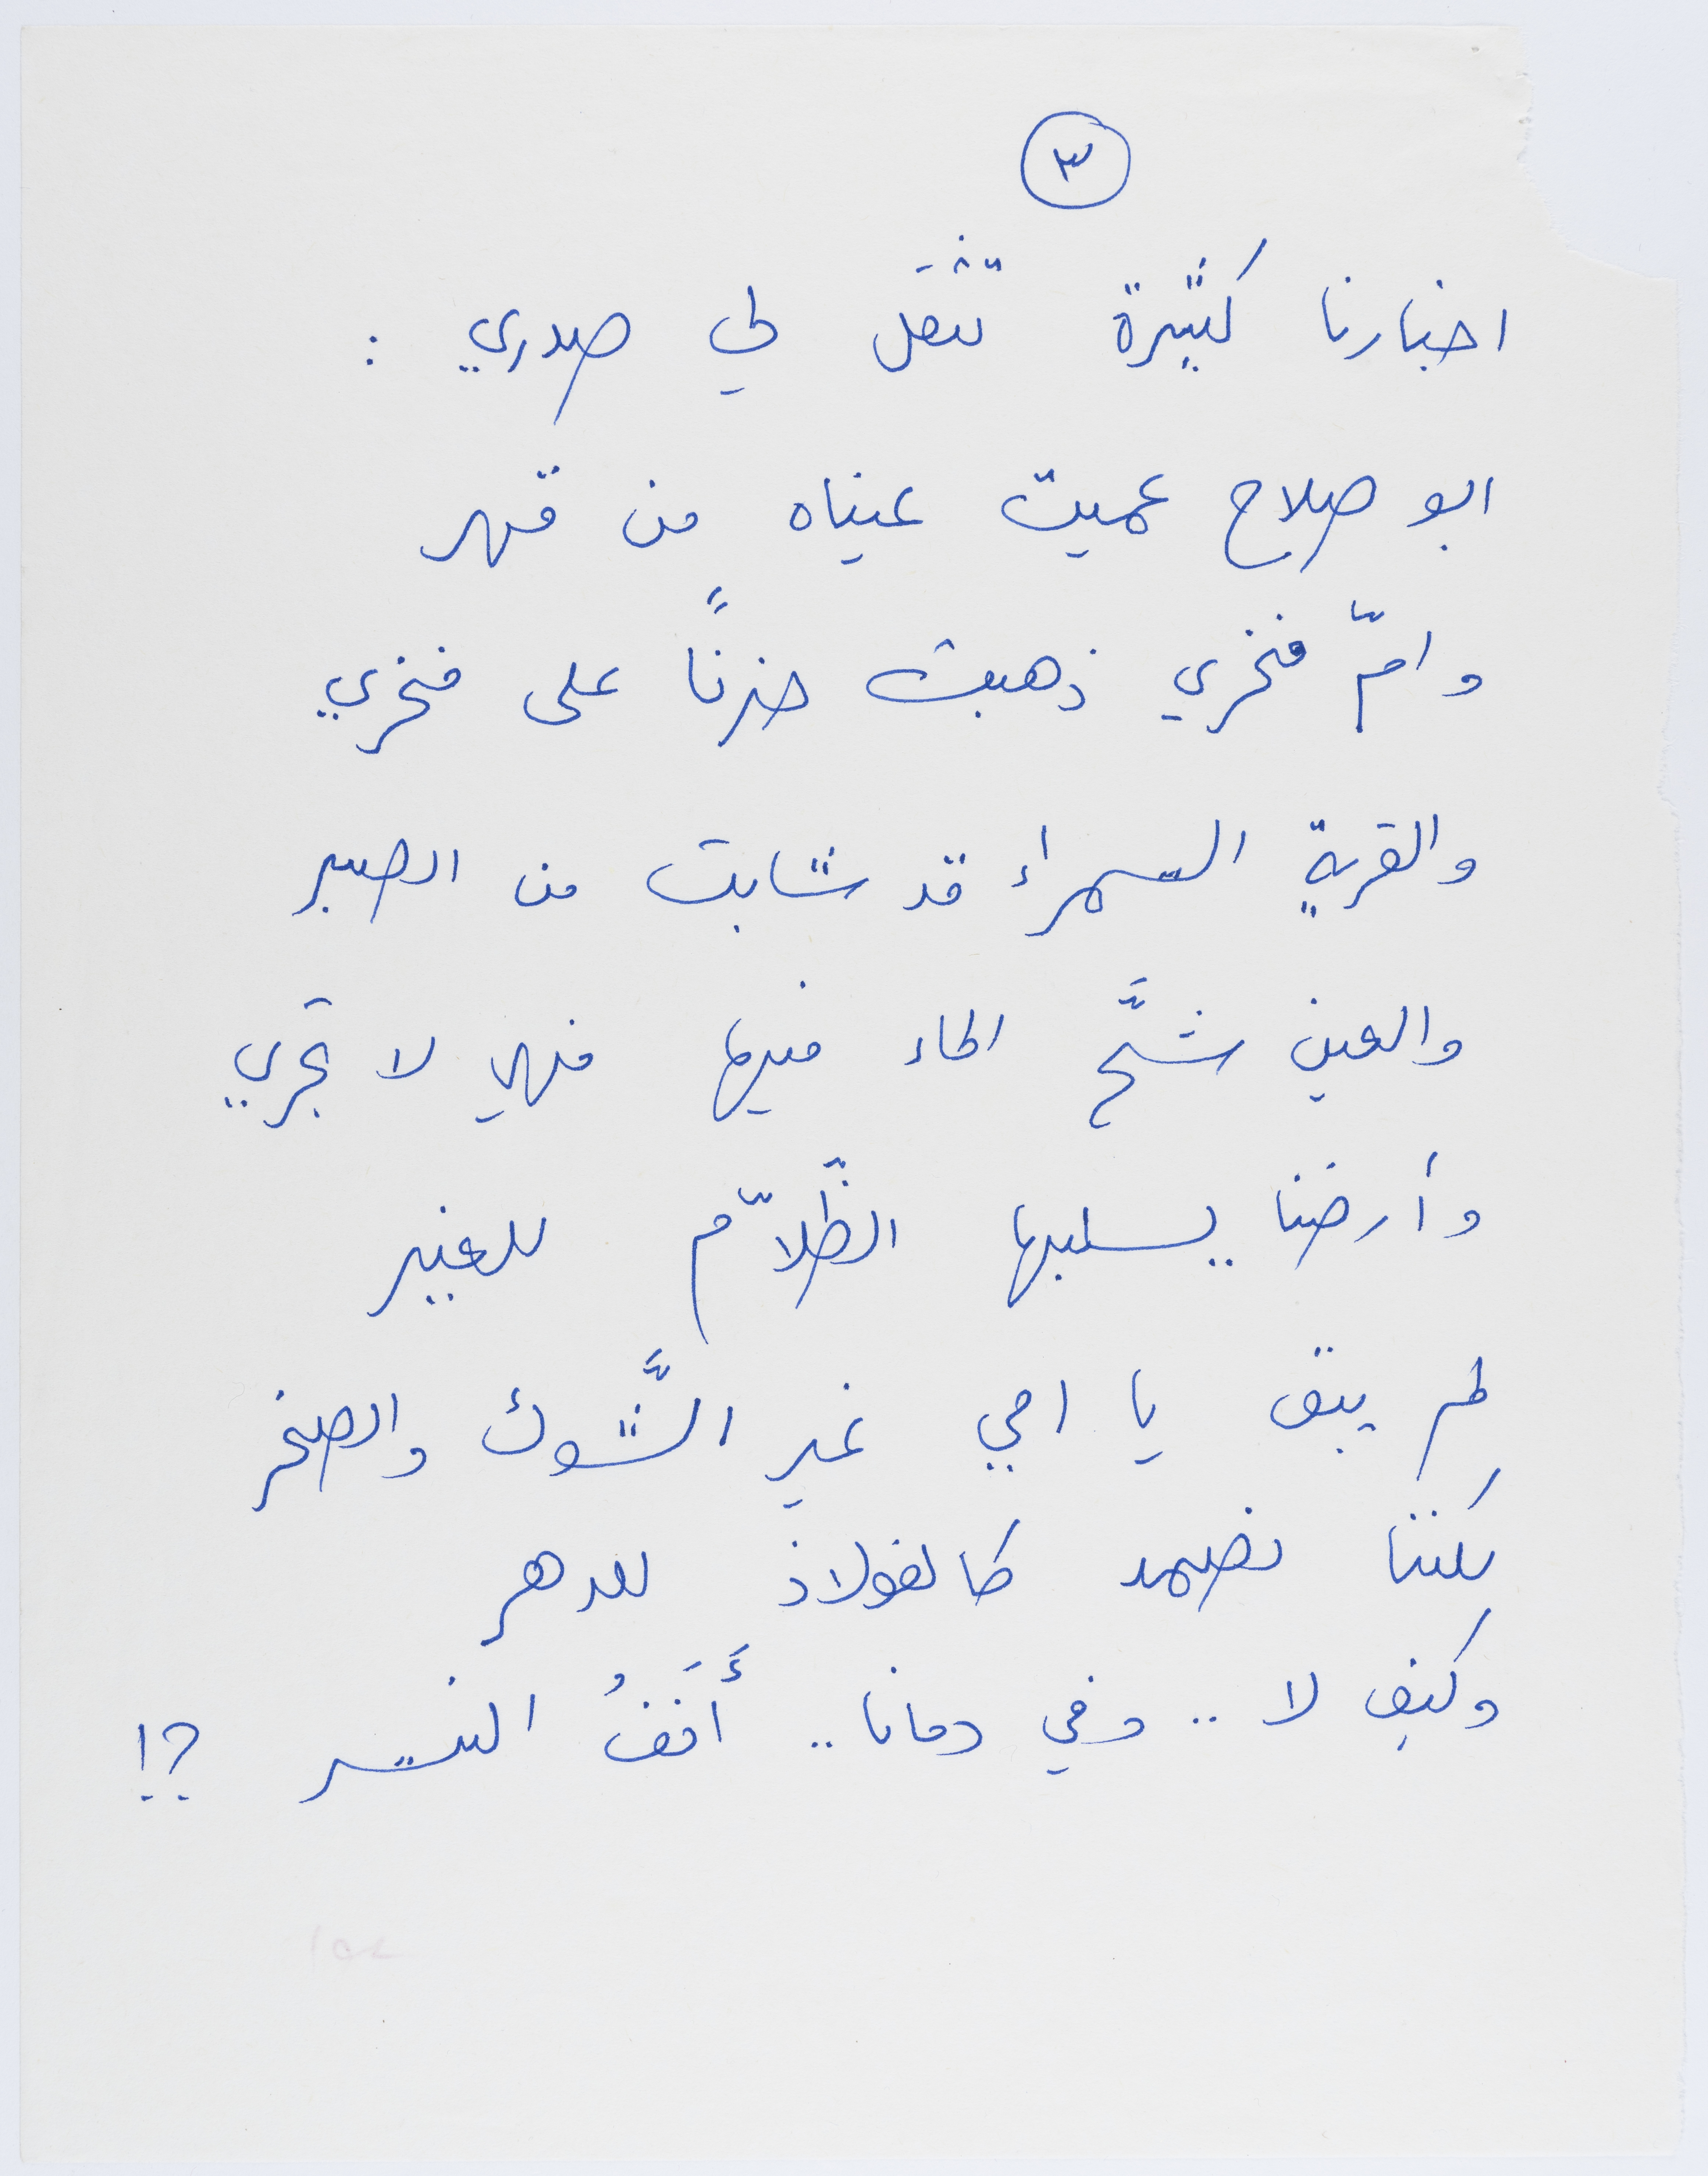 ٣
اخبارنا كثيرة تثقَل لي صدري :
ابو صلاح عميت عيناه من قهر
وامّ فخري ذهبت حزنًا على فخري
والقرية السمراء قد شابت من الصبر
والعين شحَّ الماء فيها فهي لا تجري
وأرضنا يسلبها الظُلاّم للغير
لم يبق يا امي غير الشَّوك والصخر
لكننا نصمد كالفولاذ للدهر
وكيف لا .. وفي دمانا .. أَنَفُ النسر ؟!